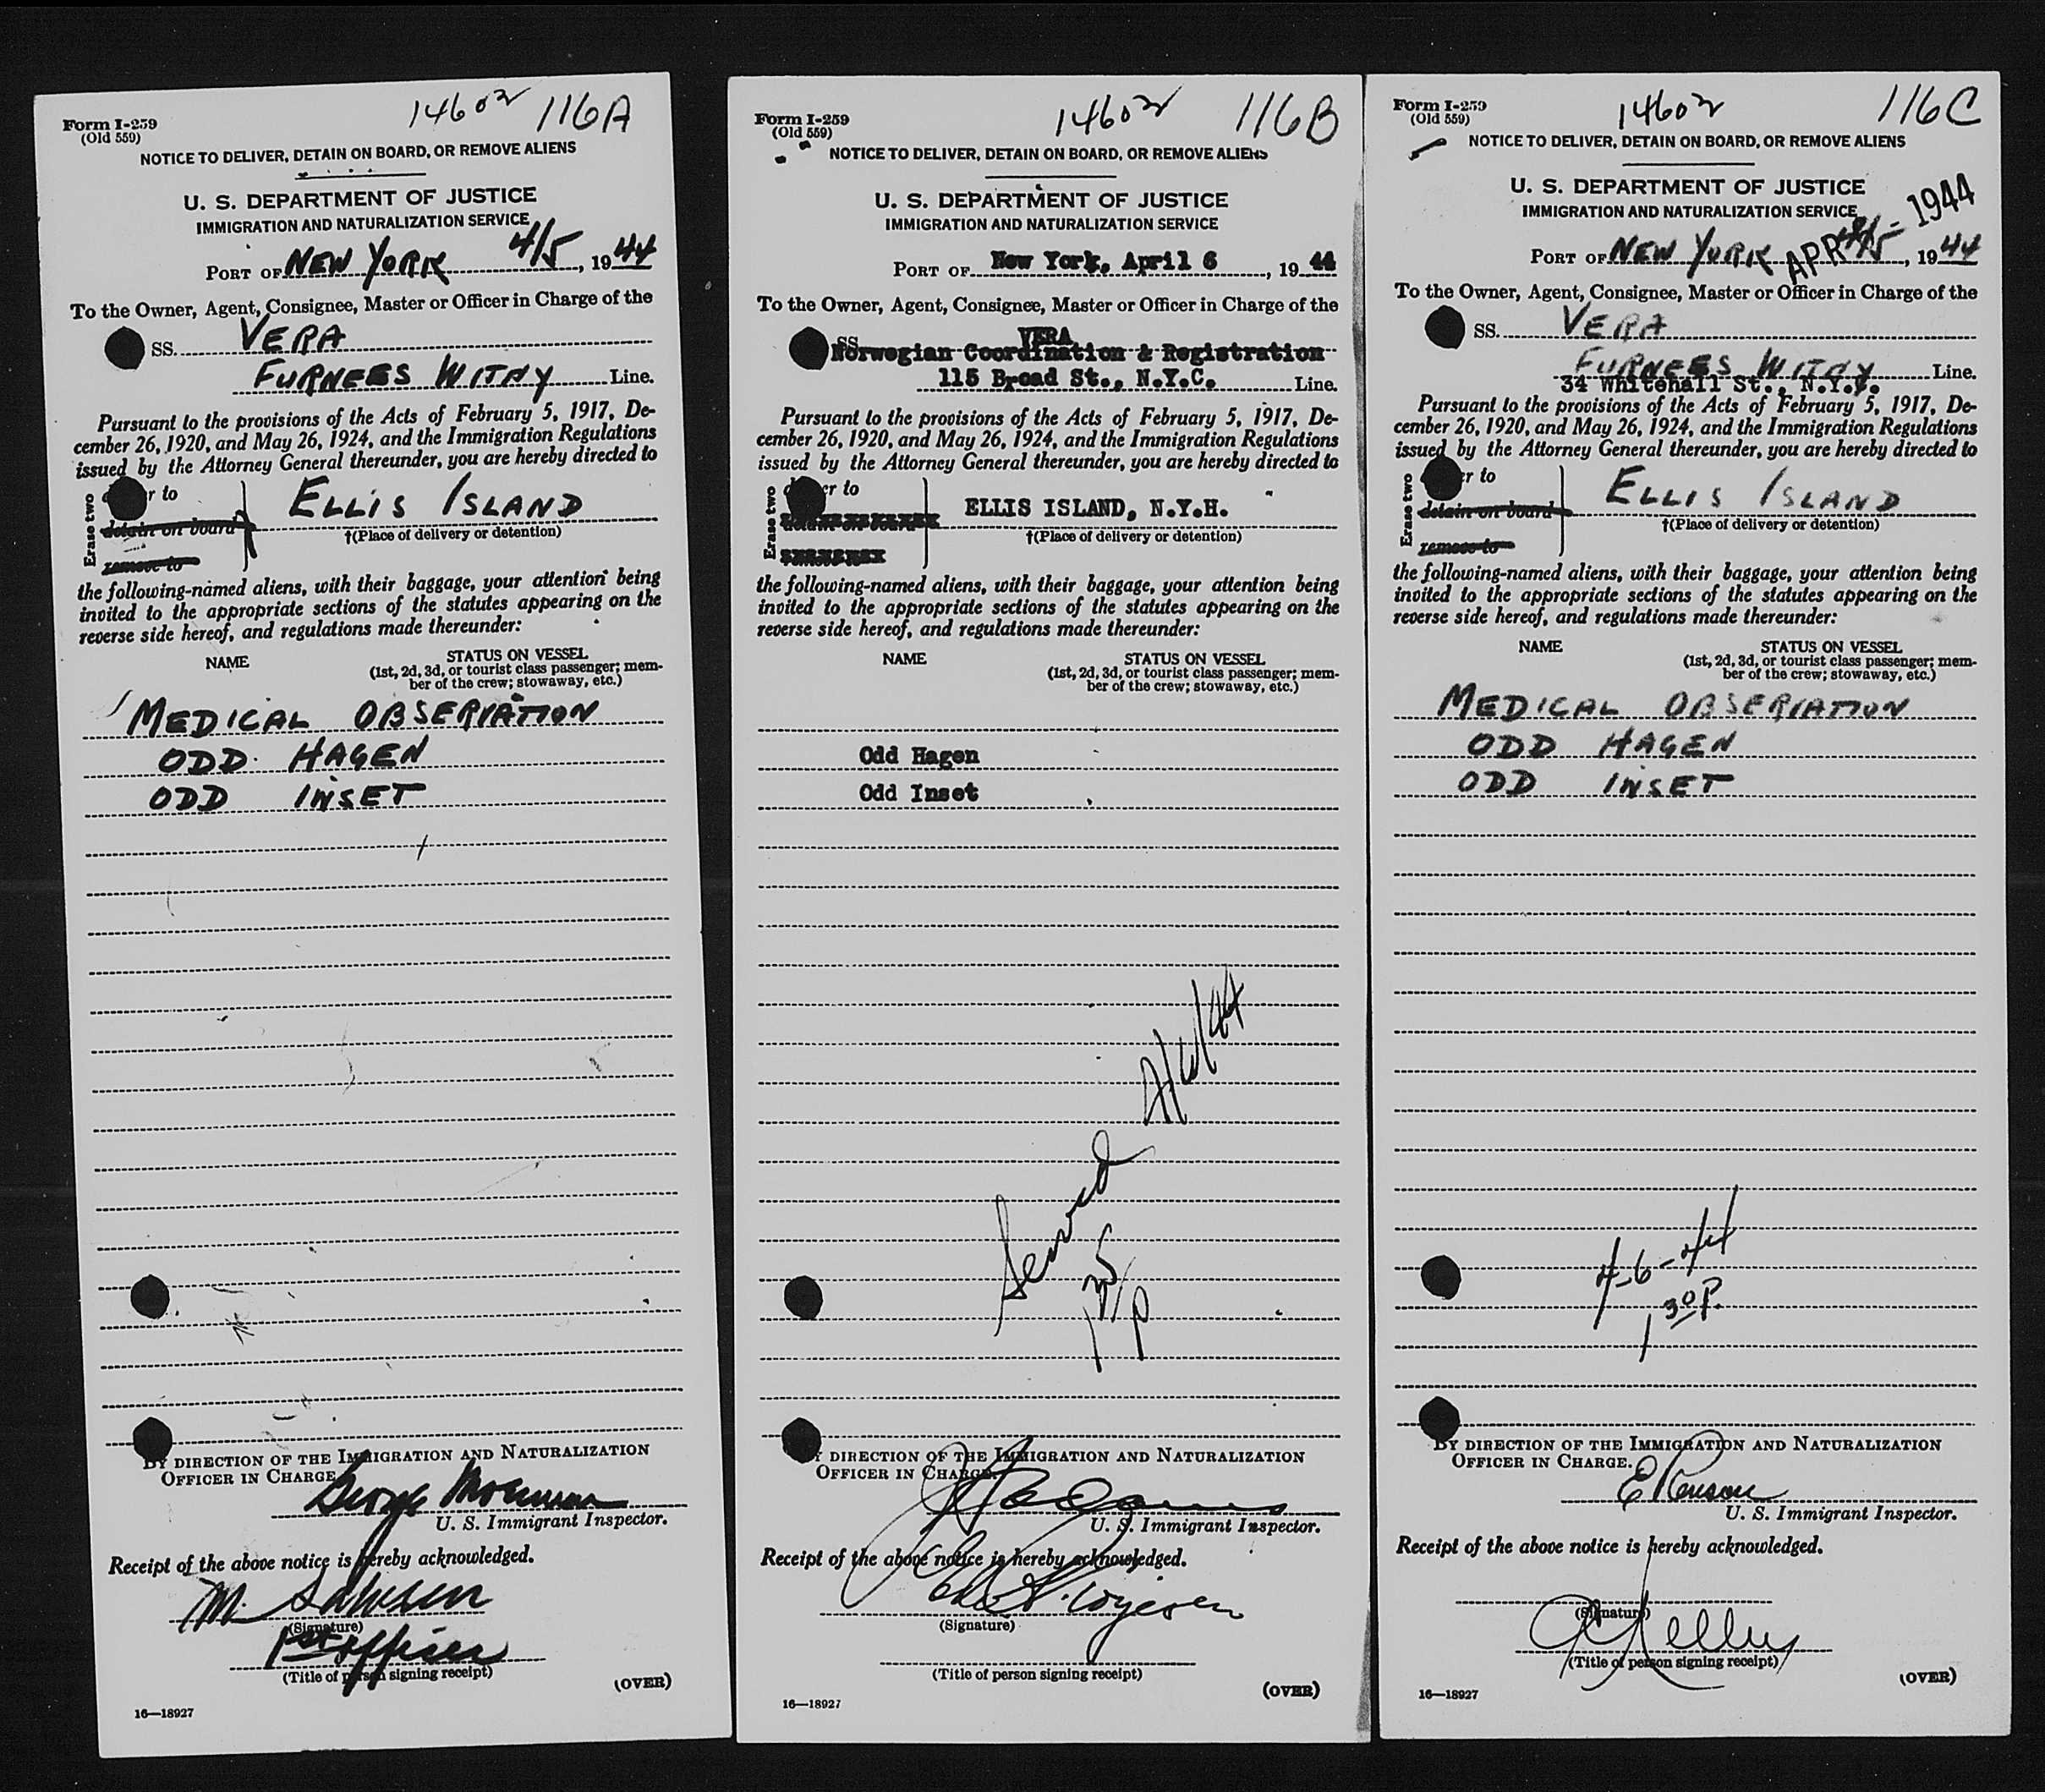 14602 116A
Form I-259
(Old 559)
NOTICE TO DELIVER, DETAIN ON BOARD, OR REMOVE ALIENS
U. S. DEPARTMENT OF JUSTICE
IMMIGRATION AND NATURALIZATION SERVICE
PORT OF NEW YORK 4/5, 1944
To the Owner, Agent, Consignee, Master or Officer in Charge of the
SS. VERA
FURNEES WITHY Line.
Pursuant to the provisions of the Acts of February 5, 1917, De-
cember 26, 1920, and May 26, 1924, and the Immigration Regulations
issued by the Attorney General thereunder, you are hereby directed to
Erase two
r to
detain on board
remove to
ELLIS ISLAND
†(Place of delivery or detention)
the following-named aliens, with their baggage, your attention being
invited to the appropriate sections of the statutes appearing on the
reverse side hereof, and regulations made thereunder:
NAME STATUS ON VESSEL
(1st, 2d, 3d, or tourist class passenger; mem-
ber of the crew; stowaway, etc.)
MEDICAL OBSERVATION
ODD HAGEN
ODD INSET
BY DIRECTION OF THE IMMIGRATION AND NATURALIZATION
OFFICER IN CHARGE.
George
U. S. Immigrant Inspector.
Receipt of the above notice is hereby acknowledged.
M.
(Signature)
1st officer
(Title of person signing receipt)
(OVER)
16—18927
14602 116B
Form I-259
(Old 559)
NOTICE TO DELIVER, DETAIN ON BOARD, OR REMOVE ALIENS
U. S. DEPARTMENT OF JUSTICE
IMMIGRATION AND NATURALIZATION SERVICE
PORT OF New York, April 6, 1944
To the Owner, Agent, Consignee, Master or Officer in Charge of the
SS. VERA
Norwegian Coordination & Registration
115 Broad St., N.Y.C. Line.
Pursuant to the provisions of the Acts of February 5, 1917, De-
cember 26, 1920, and May 26, 1924, and the Immigration Regulations
issued by the Attorney General thereunder, you are hereby directed to
Erase two
er to
ELLIS ISLAND, N.Y.H.
†(Place of delivery or detention)
the following-named aliens, with their baggage, your attention being
invited to the appropriate sections of the statutes appearing on the
reverse side hereof, and regulations made thereunder:
NAME STATUS ON VESSEL
(1st, 2d, 3d, or tourist class passenger; mem-
ber of the crew; stowaway, etc.)
Odd Hagen
Odd Inset
Served 4/6/44
1 25/P
BY DIRECTION OF THE IMMIGRATION AND NATURALIZATION
OFFICER IN CHARGE.
U. S. Immigrant Inspector.
Receipt of the above notice is hereby acknowledged.
(Signature)
(Title of person signing receipt)
(OVER)
16—18927
14602 116C
Form I-259
(Old 559)
NOTICE TO DELIVER, DETAIN ON BOARD, OR REMOVE ALIENS
U. S. DEPARTMENT OF JUSTICE
IMMIGRATION AND NATURALIZATION SERVICE
APR 1944
PORT OF NEW YORK 4/5, 1944
To the Owner, Agent, Consignee, Master or Officer in Charge of the
SS. VERA
FURNEES WITHY Line.
34 Whitehall St., N.Y.C.
Pursuant to the provisions of the Acts of February 5, 1917, De-
cember 26, 1920, and May 26, 1924, and the Immigration Regulations
issued by the Attorney General thereunder, you are hereby directed to
Erase two
er to
detain on board
remove to
ELLIS ISLAND
†(Place of delivery or detention)
the following-named aliens, with their baggage, your attention being
invited to the appropriate sections of the statutes appearing on the
reverse side hereof, and regulations made thereunder:
NAME STATUS ON VESSEL
(1st, 2d, 3d, or tourist class passenger; mem-
ber of the crew; stowaway, etc.)
MEDICAL OBSERVATION
ODD HAGEN
ODD INSET
4-6-44
1 30 P.
BY DIRECTION OF THE IMMIGRATION AND NATURALIZATION
OFFICER IN CHARGE.
U. S. Immigrant Inspector.
Receipt of the above notice is hereby acknowledged.
(Signature)
Kelly
(Title of person signing receipt)
(OVER)
16—18927